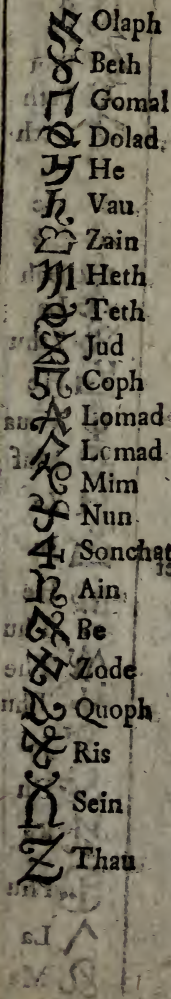 Olaph
Beth
Gomal
Dolad,
He
Vau
Zain
Heth
Teth
Jud
Coph
Lomad
Lomad
Mim
Nun
Sonchat
Ain
Be
Zode
Quoph
Ris
Sein
Thau